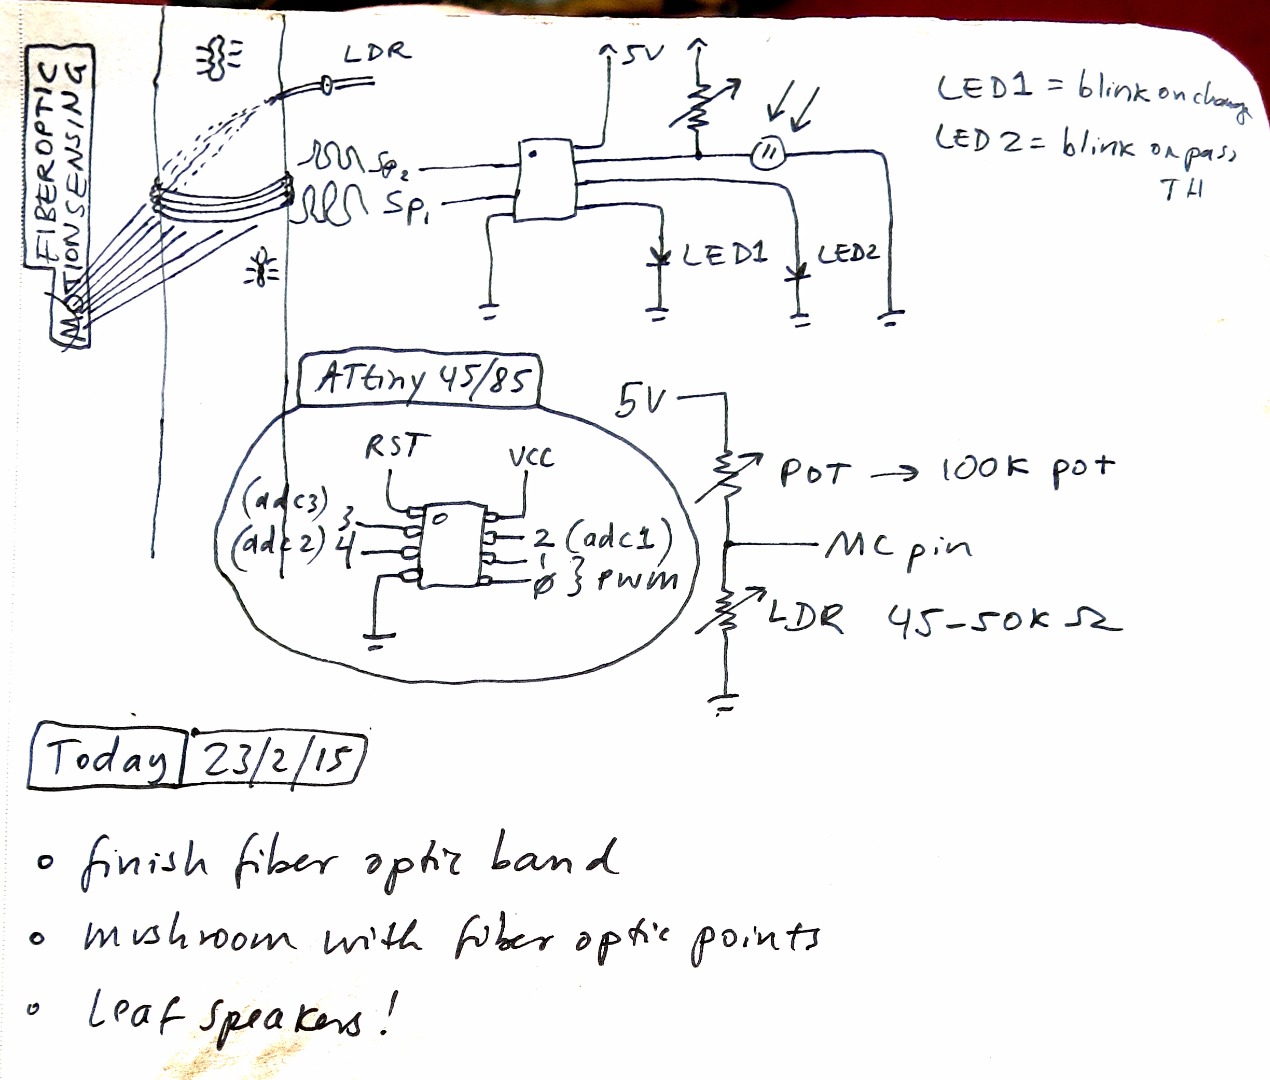 FIBEROPTIC
MOTIONSENSING
LDR
5V
LED1 = blink on change
LED2 = blink on pass
TH
Sp2
Sp1
LED1
LED2
ATtiny 45/85
RST
VCC
(adc3) 3
(adc2) 4
2 (adc1)
1
0 } PWM
5V
POT → 100K pot
MC pin
LDR 45-50K Ω
Today 23/2/15
• finish fiber optic band
• mushroom with fiber optic points
• Leaf speakers!